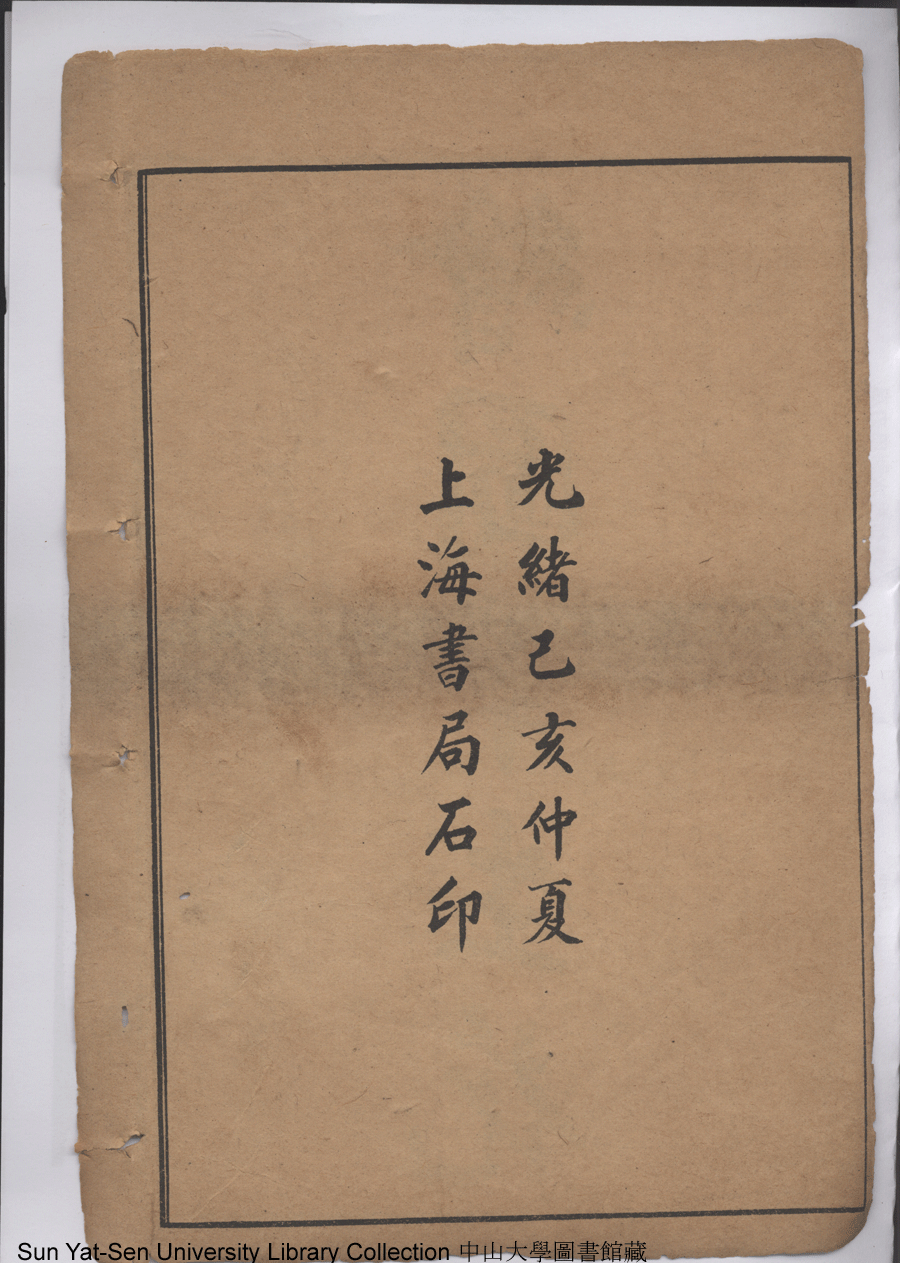 光緒己亥仲夏
上海書局石印
Sun Yat-Sen University Library Collection 中山大學圖書館藏